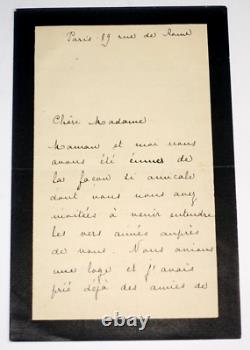 Paris 89 rue de Rome
Chère Madame
Maman et moi nous
avons été émues de
la façon si amicale
dont vous nous avez
invitées à venir entendre
les vers aimés auprès
de vous. Nous avions
une loge et j'avais
prié déjà des amies de
ebay